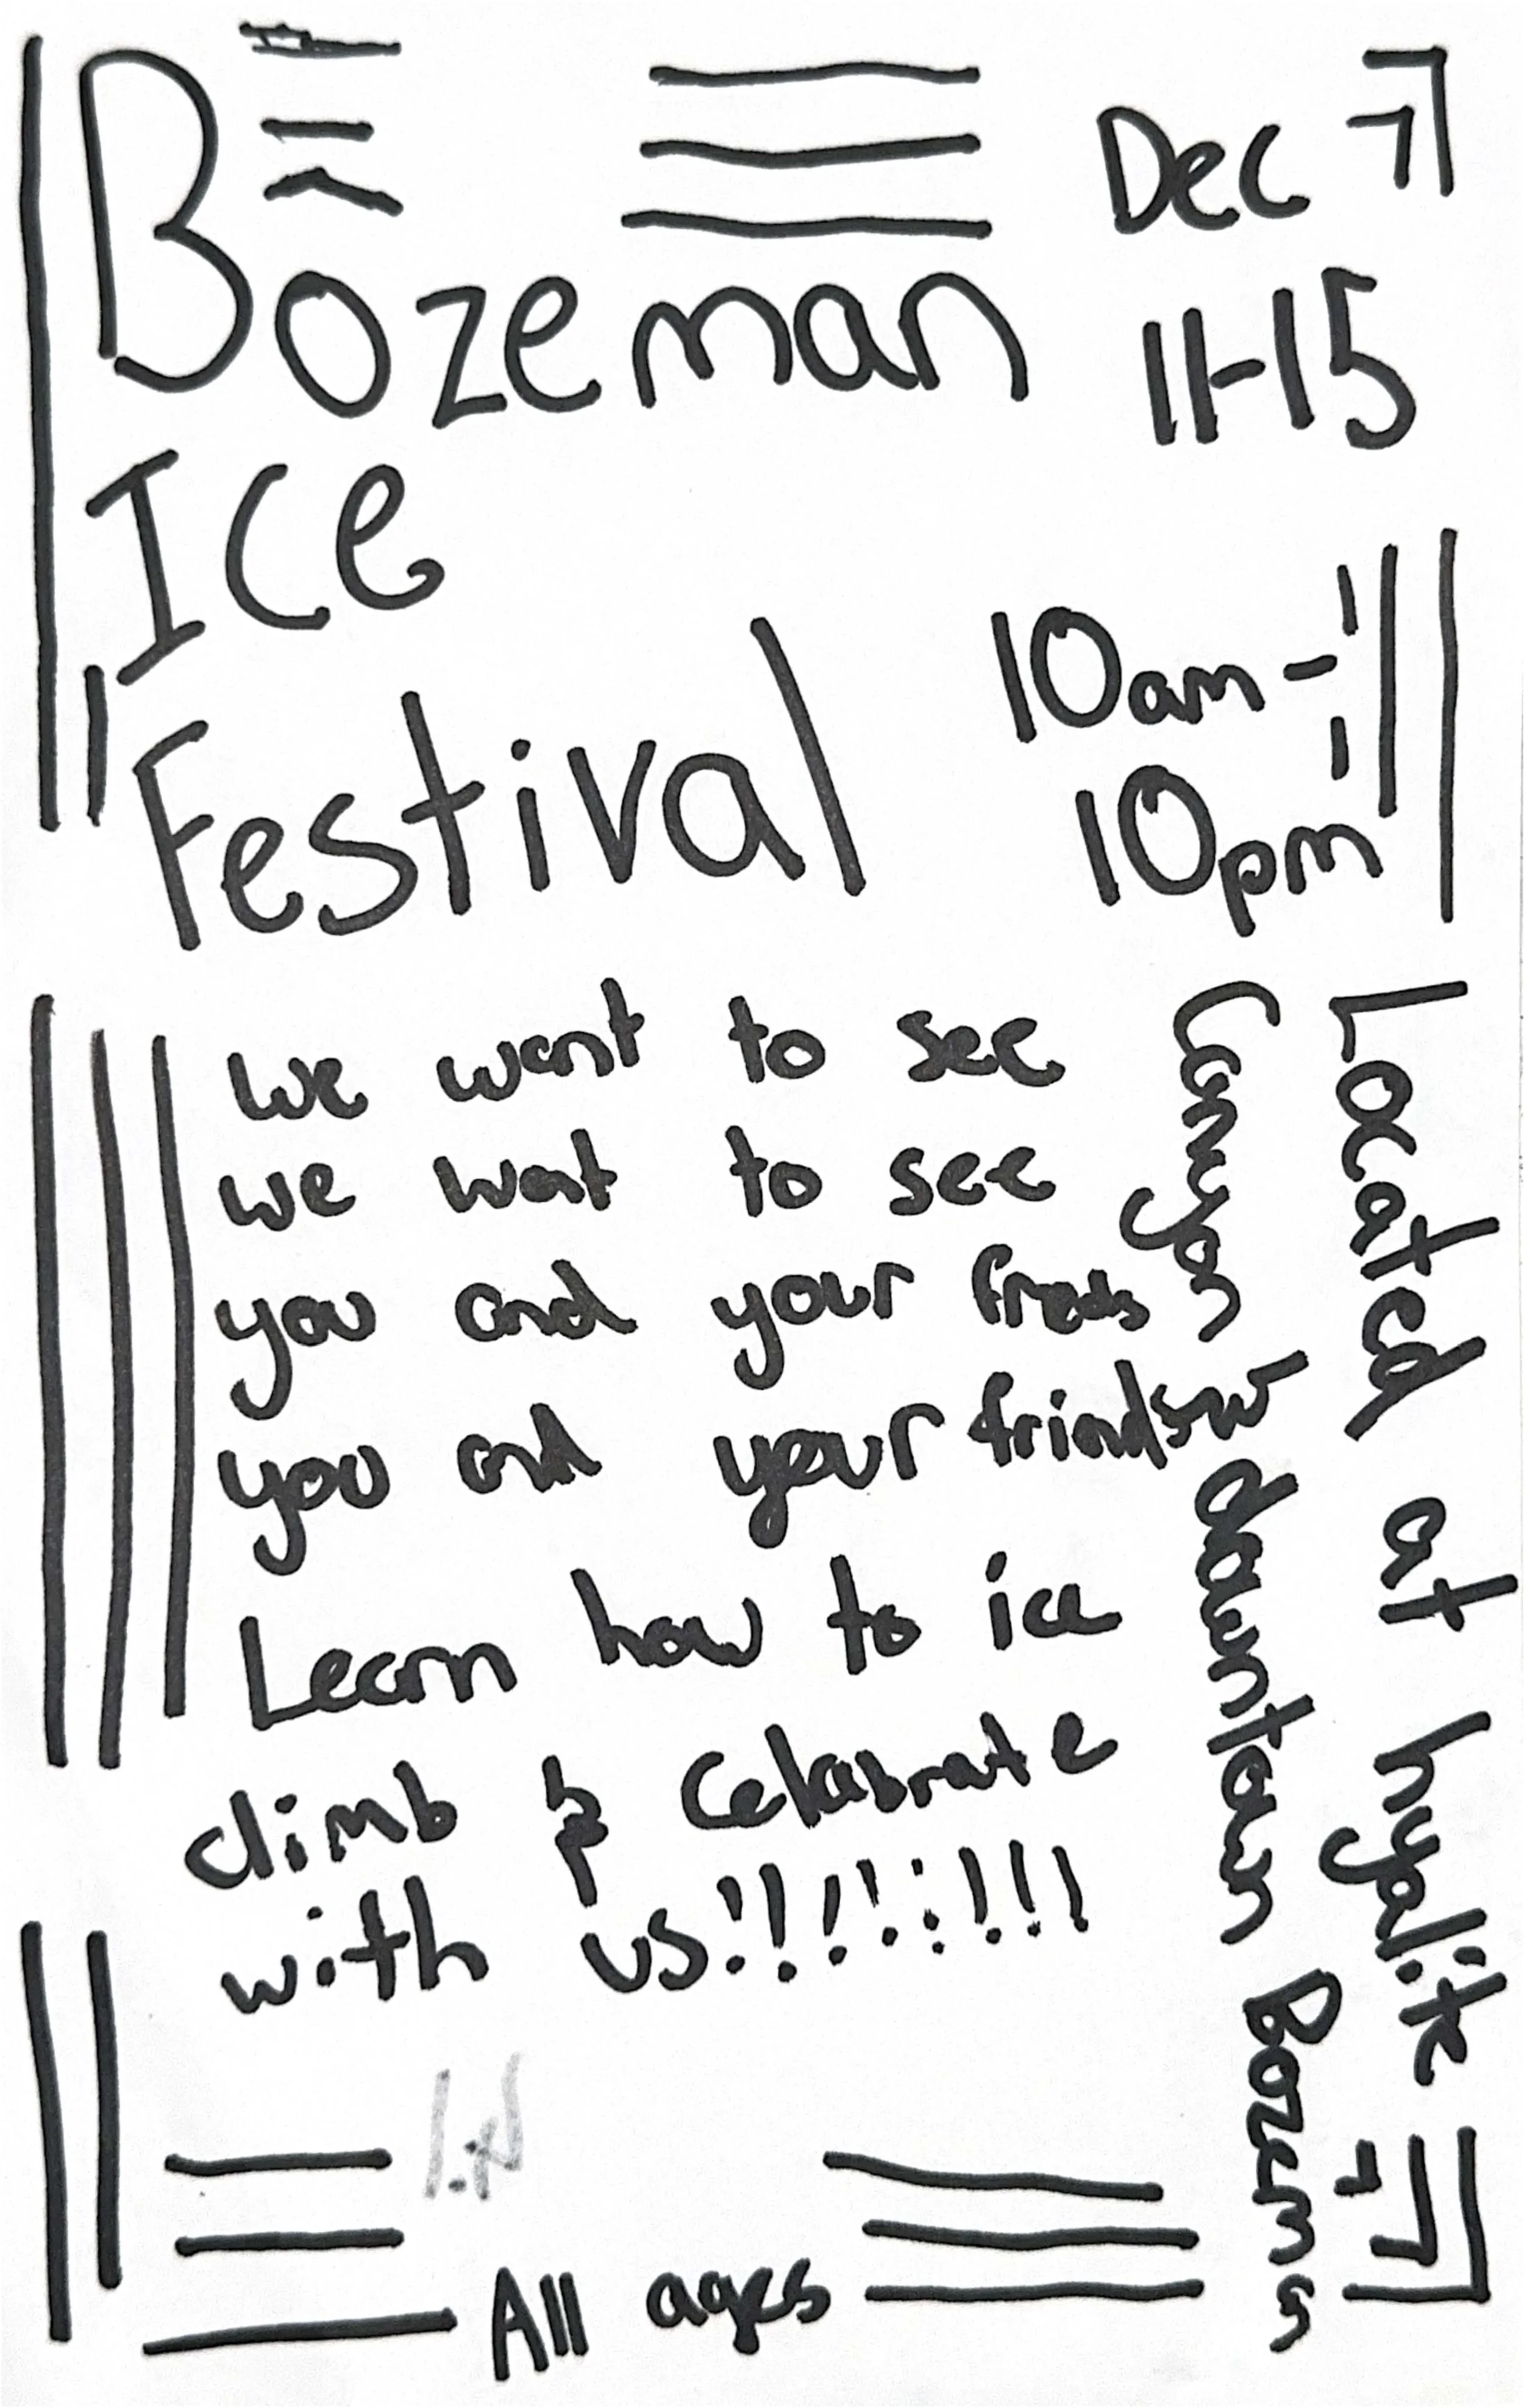 Bozeman
Ice
Festival
Dec
11-15
10am-
10pm
we want to see
we wat to see
you and your frends
you and your friends
Learn how to ice
climb & Celabrate
with us!!!!!!!!
Located at hyalite
Canyon downtown Bozeman
All ages